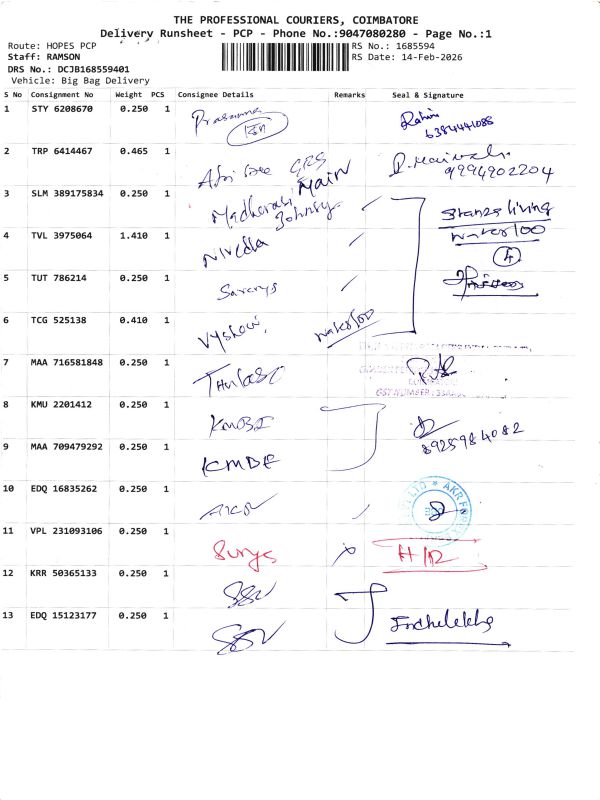 THE PROFESSIONAL COURIERS, COIMBATORE
Delivery Runsheet - PCP - Phone No.:9047080280 - Page No.:1
Route: HOPES PCP
RS No.: 1685594
Staff: RAMSON
RS Date: 14-Feb-2026
DRS No.: DCJB168559401
Vehicle: Big Bag Delivery
S No Consignment No Weight PCS Consignee Details Remarks Seal & Signature
1 STY 6208670 0.250 1 Prasanna
6384441085
2 TRP 6414467 0.465 1
9994902204
3 SLM 389175834 0.250 1 Main
Johnsy
4 TVL 3975064 1.410 1 Nivedha
5 TUT 786214 0.250 1
6 TCG 525138 0.410 1
7 MAA 716581848 0.250 1
GST NUMBER : 33
8 KMU 2201412 0.250 1
8925984082
9 MAA 709479292 0.250 1 KMDE
10 EDQ 16835262 0.250 1
AKR
11 VPL 231093106 0.250 1 Surya H/R
12 KRR 50365133 0.250 1 SSV
13 EDQ 15123177 0.250 1 SSV